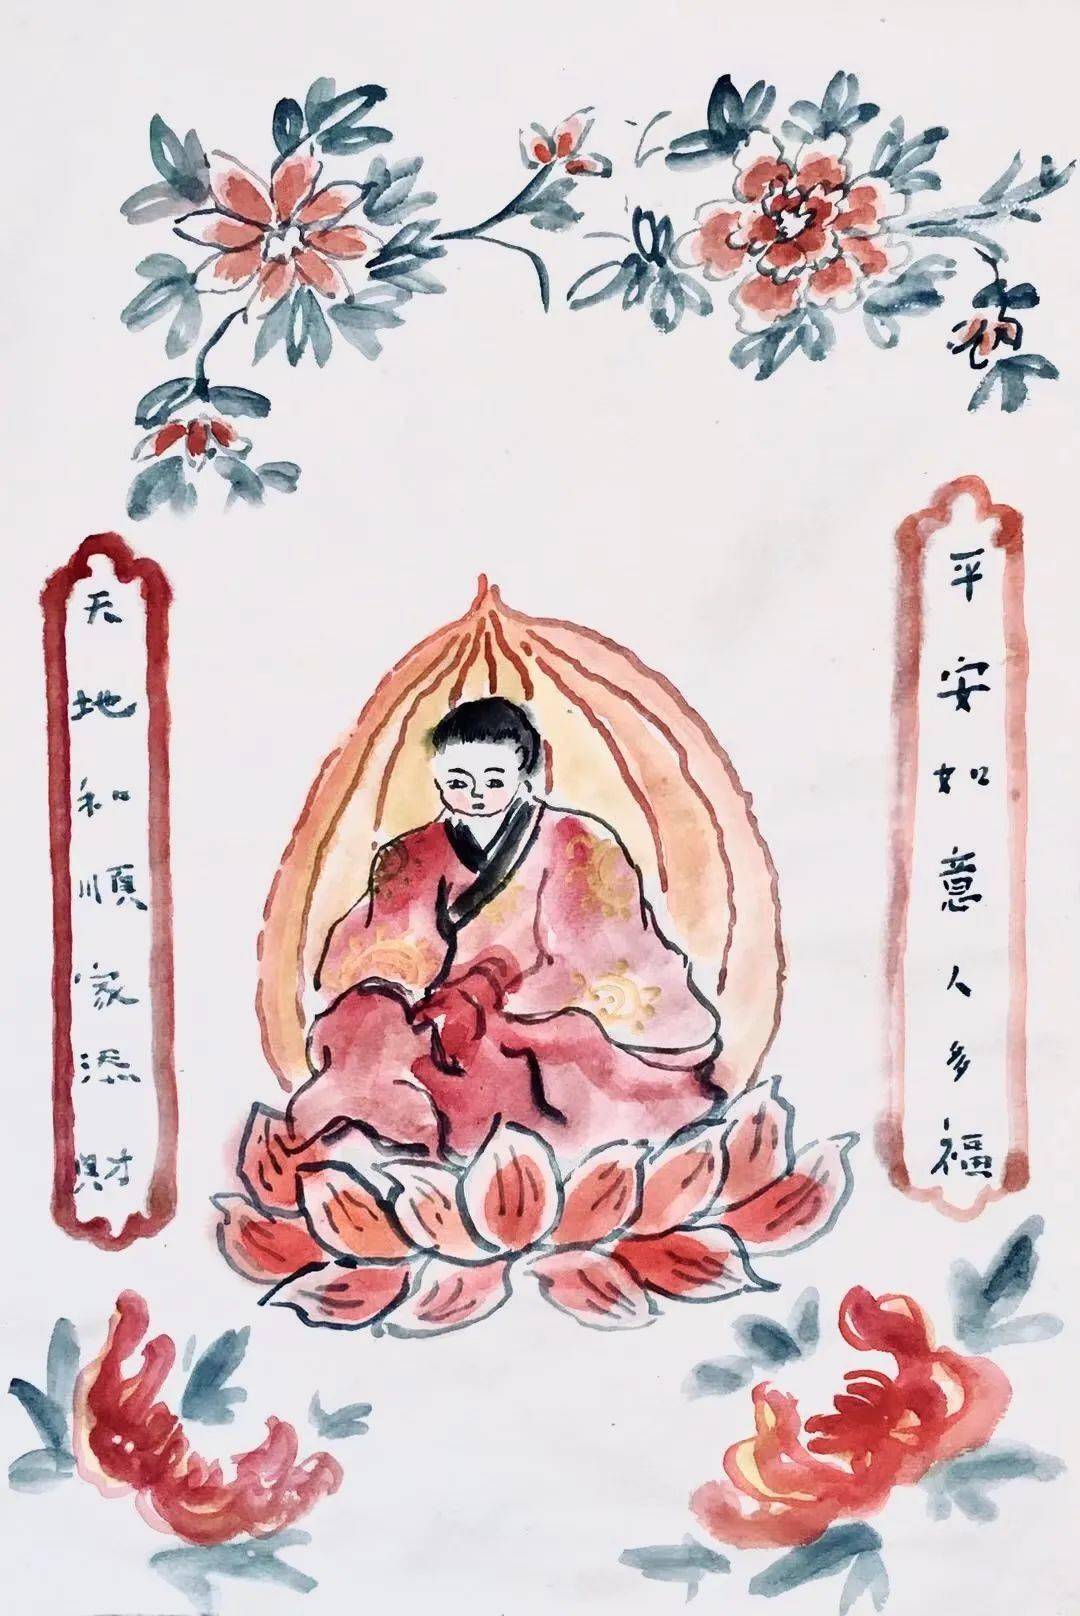 平安如意人多福
天地和順家添財